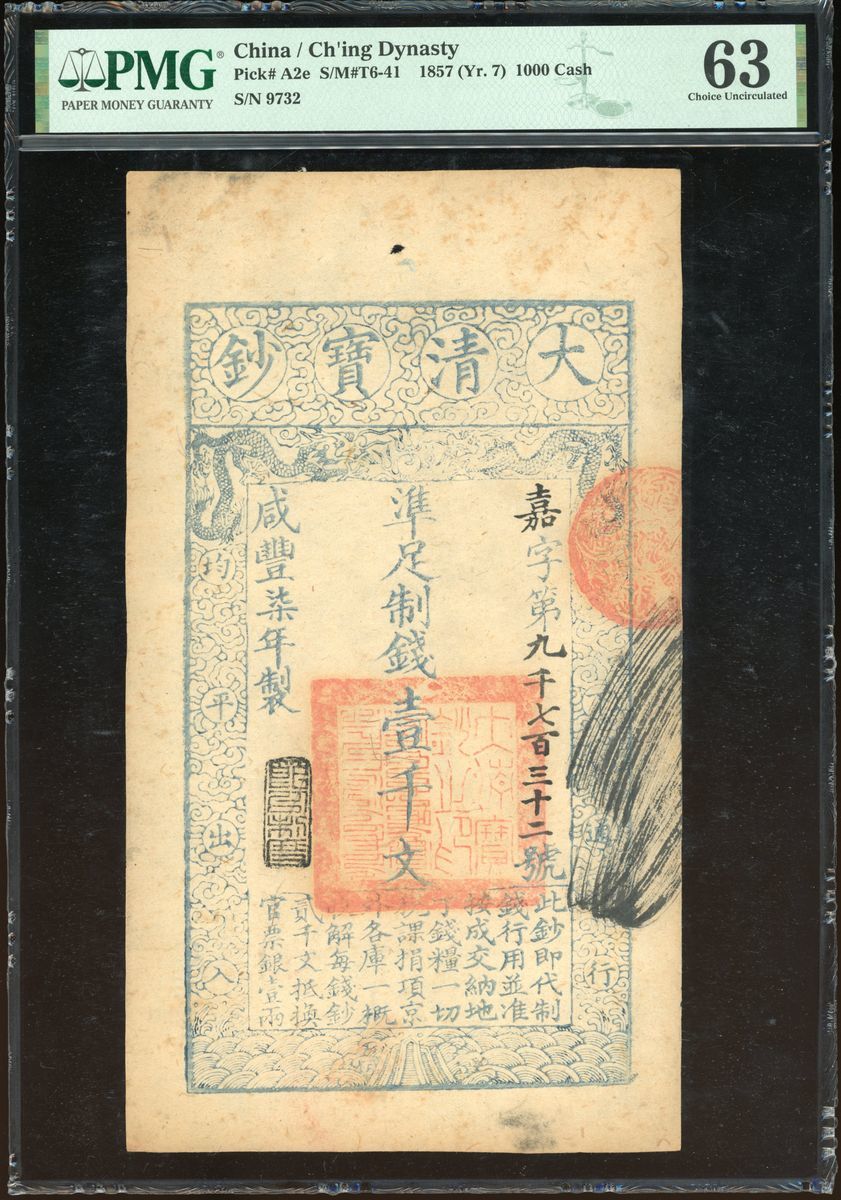 PMG®
PAPER MONEY GUARANTY
China / Ch'ing Dynasty
Pick# A2e S/M#T6-41 1857 (Yr. 7) 1000 Cash
S/N 9732
63
Choice Uncirculated
大清寶鈔
嘉字第九千七百三十二號
準足制錢壹千文
咸豐柒年製
通行
均平出入
此鈔即代制
錢行用並准
按成交納地
丁錢糧一切
課捐項京
各庫一概
解每錢鈔
貳千文抵換
官票銀壹兩
大清寶
鈔之印